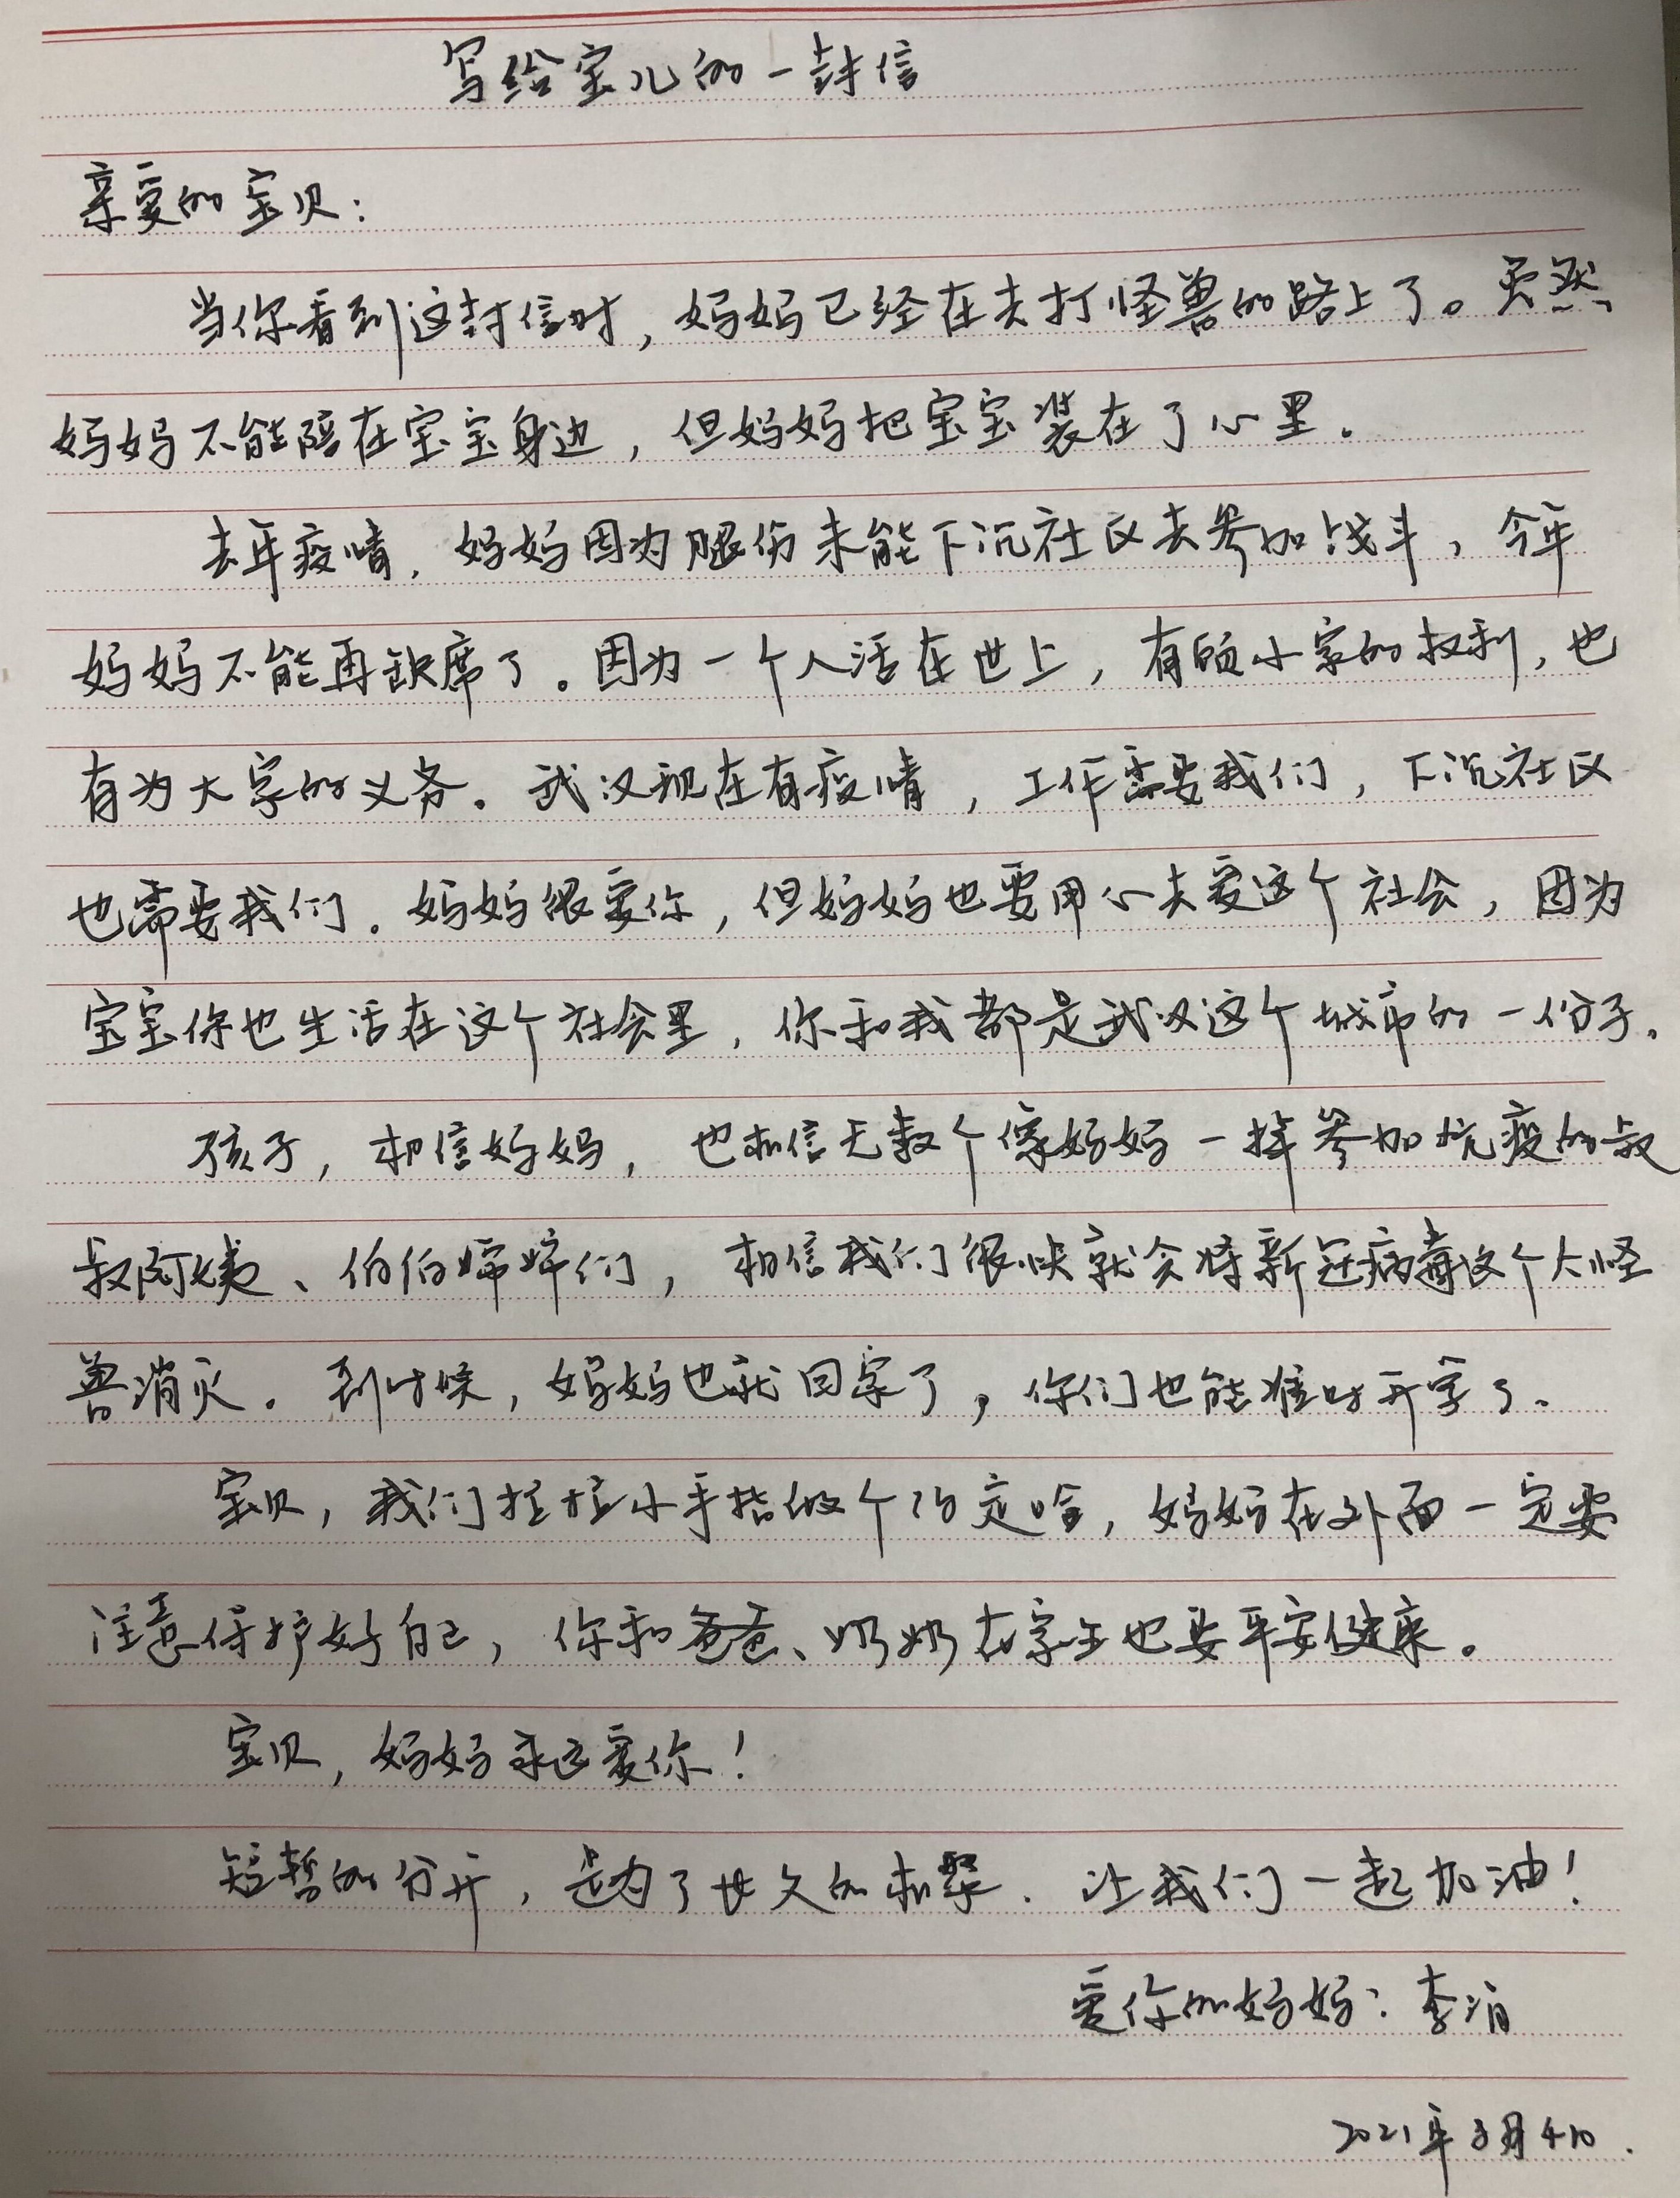 写给宝儿的一封信
亲爱的宝贝：
当你看到这封信时，妈妈已经在去打怪兽的路上了。虽然
妈妈不能陪在宝宝身边，但妈妈把宝宝装在了心里。
去年疫情，妈妈因为腿伤未能下沉社区去参加战斗，今年
妈妈不能再缺席了。因为一个人活在世上，有顾小家的权利，也
有为大家的义务。武汉现在有疫情，工作需要我们，下沉社区
也需要我们。妈妈很爱你，但妈妈也要用心去爱这个社会，因为
宝宝你也生活在这个社会里，你和我都是武汉这个城市的一份子。
孩子，相信妈妈，也相信无数个像妈妈一样参加抗疫的叔
叔阿姨、伯伯婶婶们，相信我们很快就会将新冠病毒这个大怪
兽消灭。到时候，妈妈也就回家了，你们也能准时开学了。
宝贝，我们拉拉小手指做个约定哈，妈妈在外面一定要
注意保护好自己，你和爸爸、奶奶在家里也要平安健康。
宝贝，妈妈永远爱你！
短暂的分开，是为了长久的相聚。让我们一起加油！
爱你的妈妈：李
2021年8月4日.